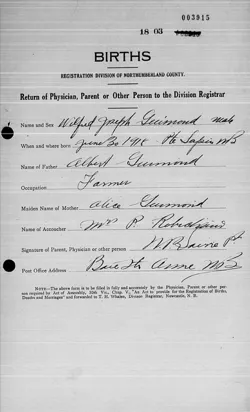 003915
18 03
BIRTHS
REGISTRATION DIVISION OF NORTHUMBERLAND COUNTY.
Return of Physician, Parent or Other Person to the Division Registrar
Name and Sex Wilfred Joseph Guimond male
When and where born June 30 1918 Pte Sapin NB
Name of Father Albert Guimond
Occupation Farmer
Maiden Name of Mother Alice Guimond
Name of Accoucher Mrs P. Robichaud
Signature of Parent, Physician or other person
Post Office Address Baie Ste Anne NB
NOTE.—The above form is to be filled in fully and accurately by the Physician, Parent or other person required by Act of Assembly, 50th Vic., Chap. V., "An Act to provide for the Registration of Births, Deaths and Marriages" and forwarded to T. H. Whalen, Division Registrar, Newcastle, N. B.